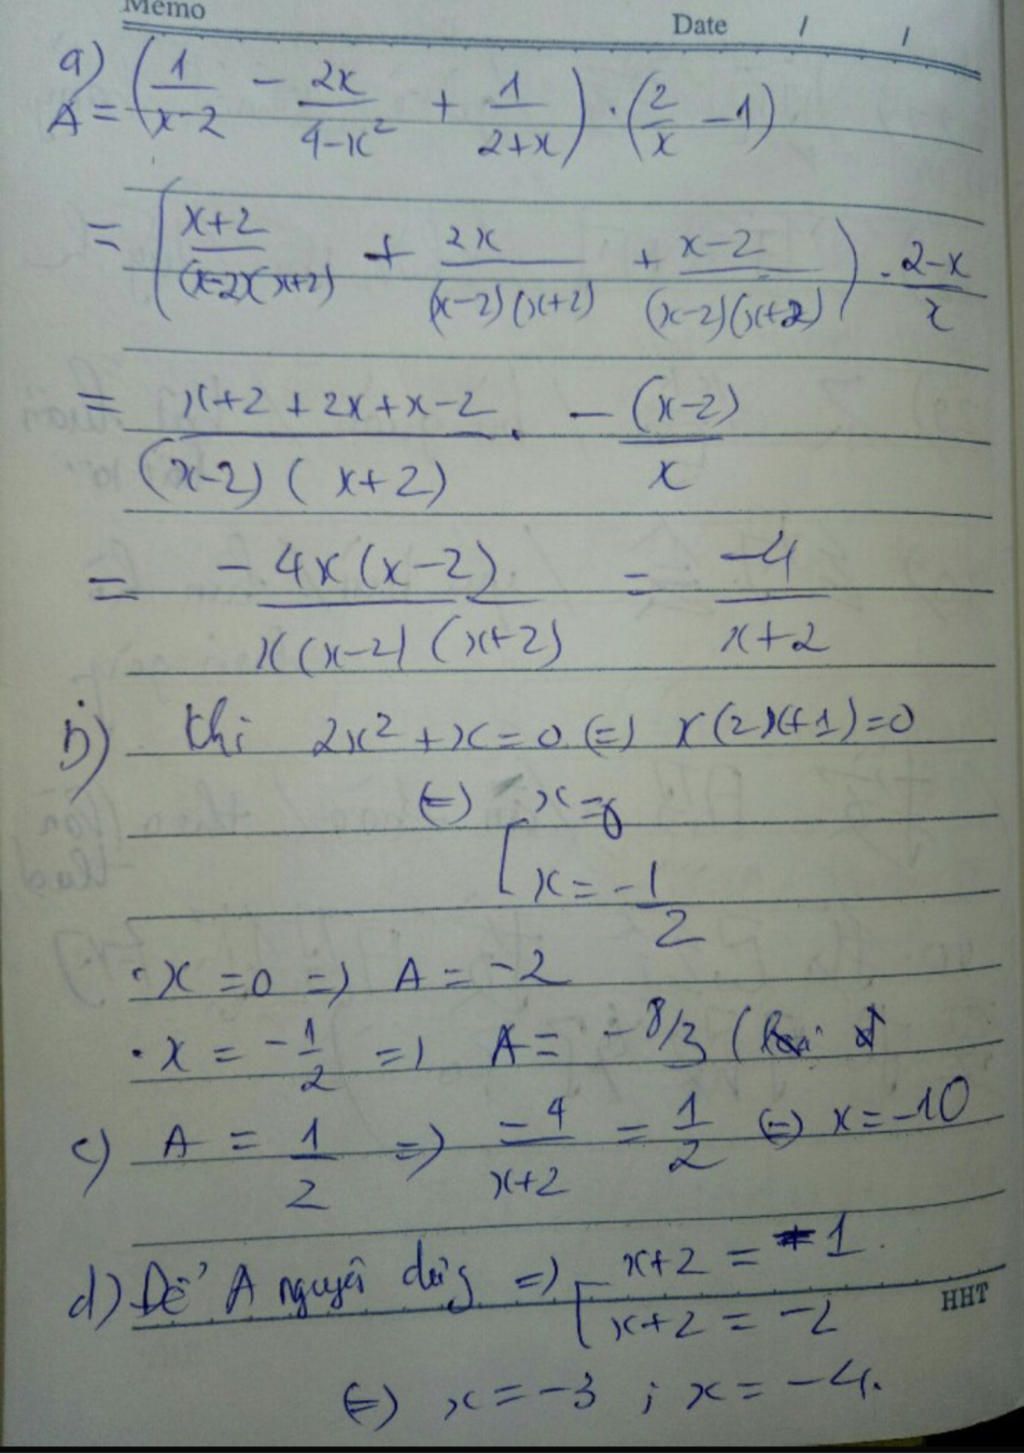 Memo Date / /
a)
A = (1/(x-2) - 2x/(4-x²) + 1/(2+x)) · (2/x - 1)
= ((x+2)/((x-2)(x+2)) + 2x/((x-2)(x+2)) + (x-2)/((x-2)(x+2))) · (2-x)/x
= (x+2+2x+x-2)/((x-2)(x+2)) · -(x-2)/x
= -4x(x-2)/(x(x-2)(x+2)) = -4/(x+2)
b) Khi 2x² + x = 0 (=) x(2x+1)=0
(=) [ x=0
x = -1/2
· x = 0 => A = -2
· x = -1/2 => A = -8/3 (
c) A = 1/2 => -4/(x+2) = 1/2 (=) x = -10
d) Để A nguyên dương => [ x+2 = 1
x+2 = -2
HHT
(=) x = -3 ; x = -4.